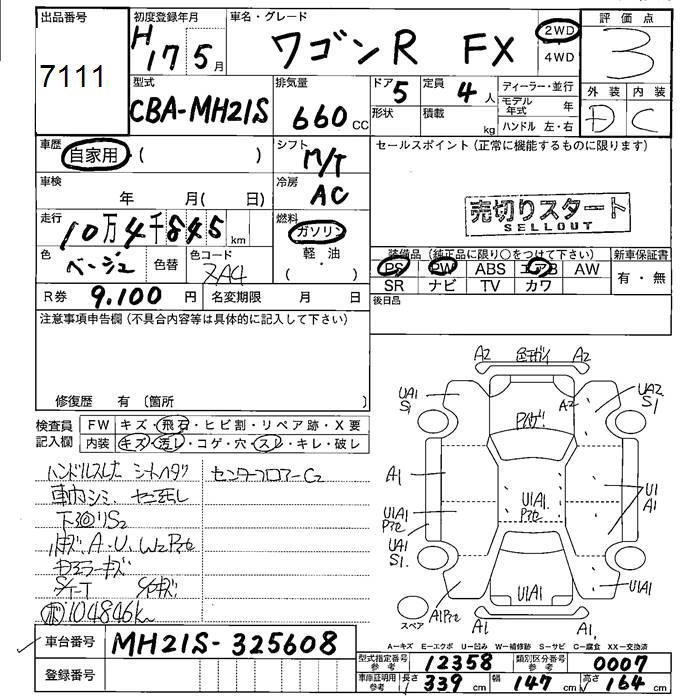 出品番号 初度登録年月 車名・グレード 評価点
7111 H 17 5月 ワゴンR FX 2WD 3
4WD
型式 排気量 ドア 5 定員 4人 ディーラー・並行 外装 内装
CBA-MH21S 660 CC 形状 積載 kg モデル年式 年 D C
ハンドル 左・右
車歴 自家用・( ) シフト M/T セールスポイント(正常に機能するものに限ります)
車検 年 月( 日) 冷房 AC
売切りスタート
SELLOUT
走行 10万4千845 km 燃料 ガソリン
軽・油
( )
色 ベージュ 色替 色コード ZA4
装備品(純正品に限り○をつけて下さい) 新車保証書
PS PW ABS エアB AW 有・無
SR ナビ TV カワ
R券 9,100 円 名変期限 月 日 後日品
注意事項申告欄(不具合内容等は具体的に記入して下さい)
修復歴 有(箇所 )
検査員記入欄 FW キズ・飛石・ヒビ割・リペア跡・X要
内装 キズ・汚れ・コゲ・穴・スレ・キレ・破レ
ハンドルスレ シートヘタリ センターフロアーC2
車内シミ
下廻りS2
A.U.W2
ミラーキズ
104846km
A2 A2
UA1 S1 A2 UA2 S1
A1 U1A1 U1 A1
U1A1
UA1 S1 U1A1 U1A1
スペア A1 A1
A-キズ E-エクボ U-凹み W-補修跡 S-サビ C-腐食 XX-交換済
車台番号 MH21S-325608
登録番号
型式指定番号 参考 12358 類別区分番号 参考 0007
車庫証明用 参考 長さ 339 cm 幅 147 cm 高さ 164 cm